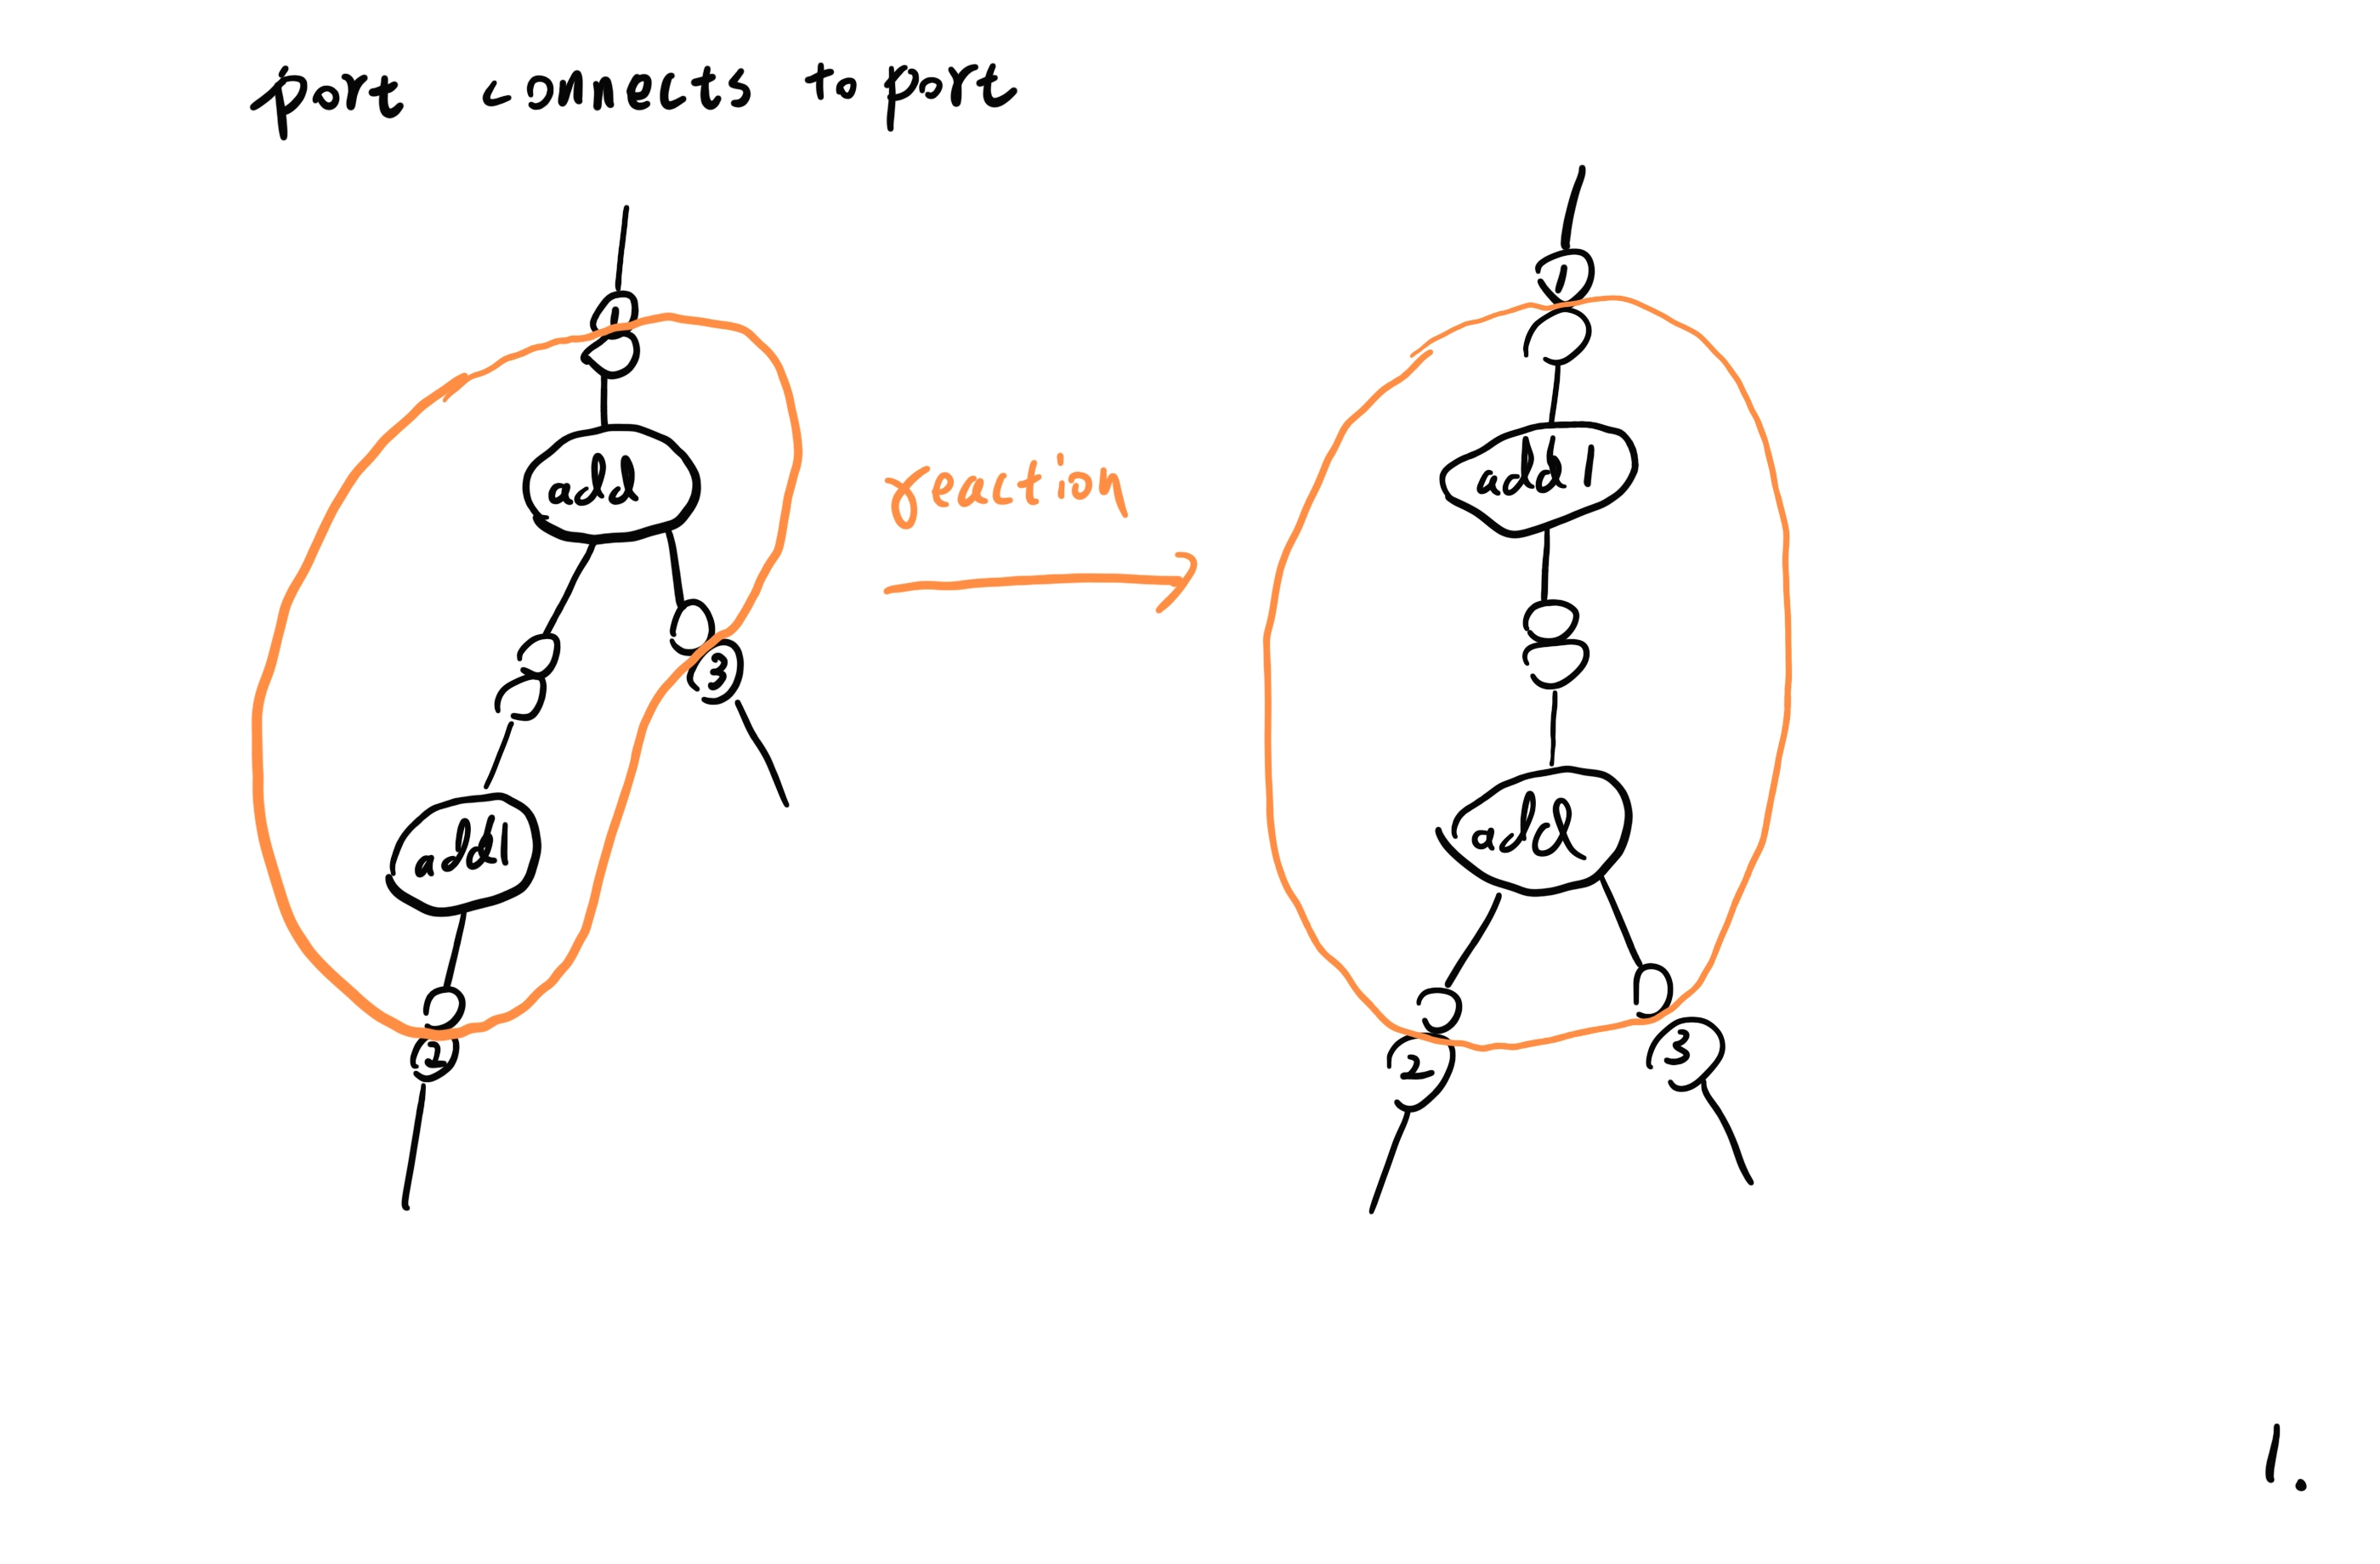 port connects to port
1
1
add
add1
reaction
3
add1
add
2
2
3
1.